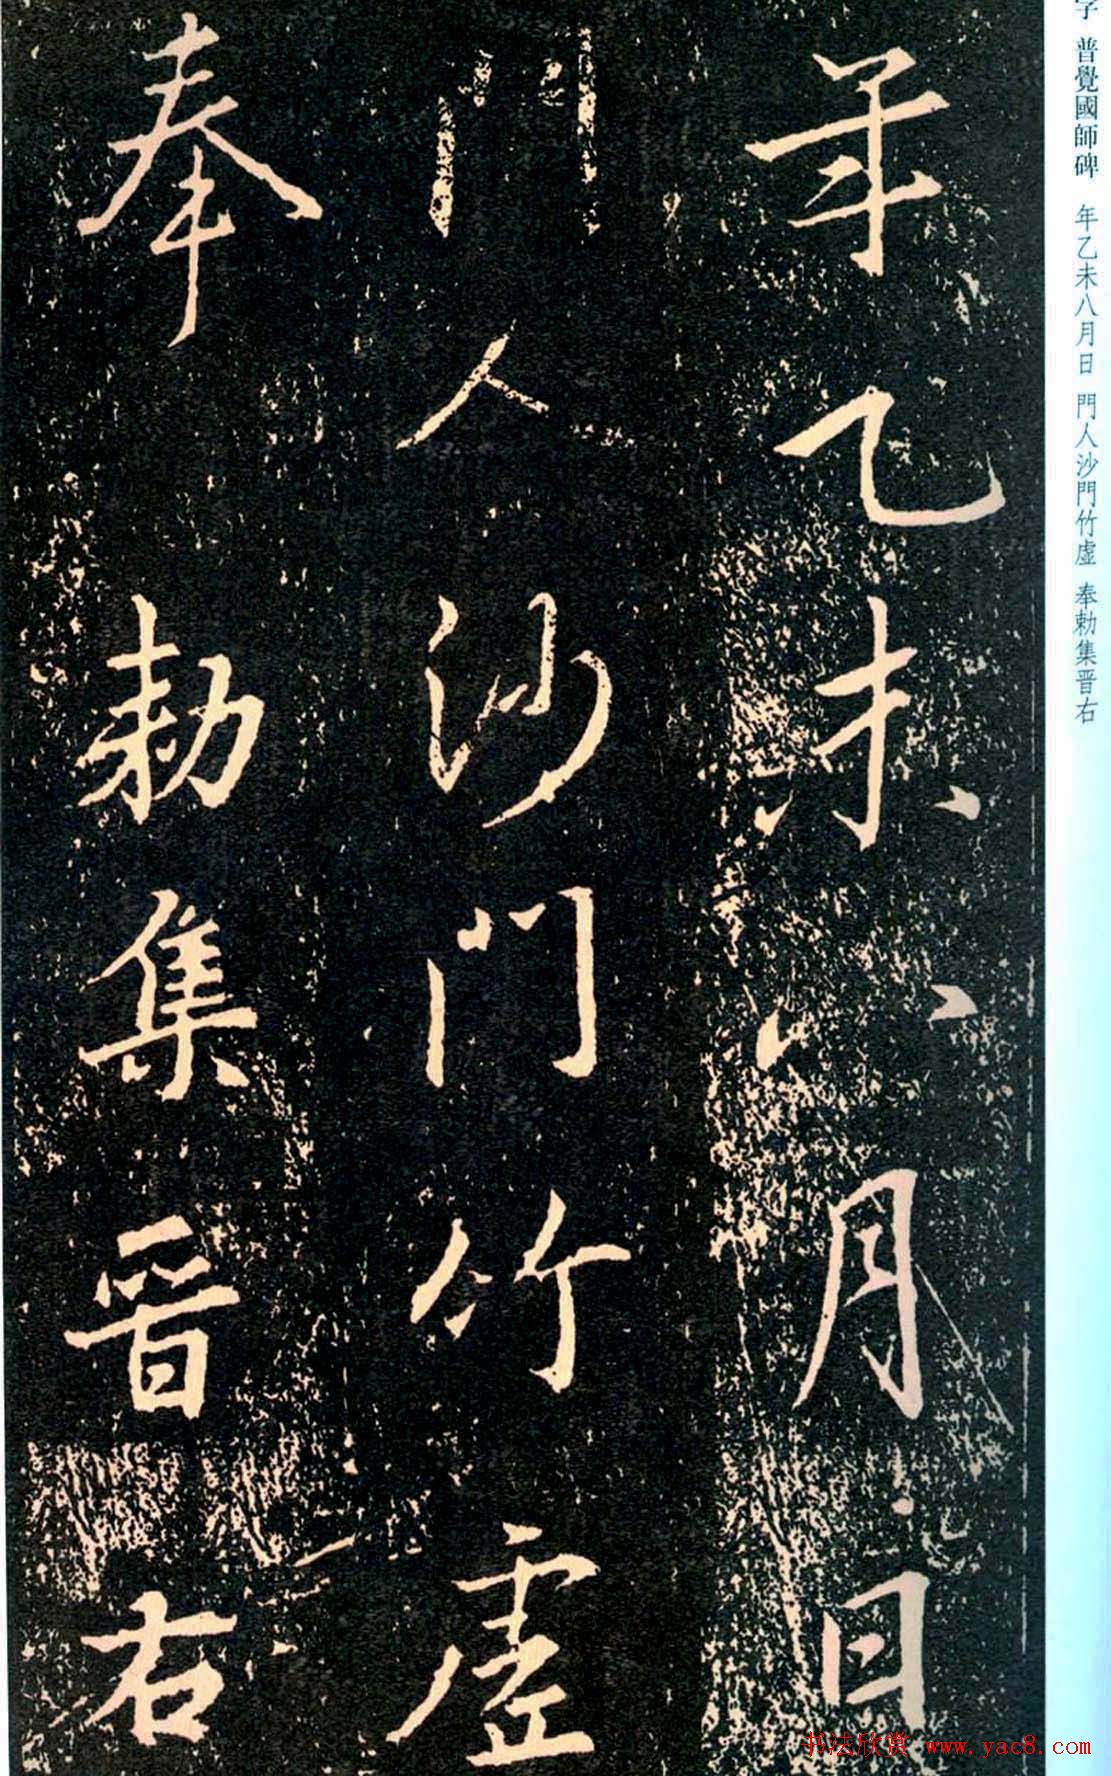 年乙未八月日
門人沙門竹虛
奉勅集晉右
字 普覺國師碑 年乙未八月日 門人沙門竹虛 奉勅集晋右
书法欣赏 www.yac8.com